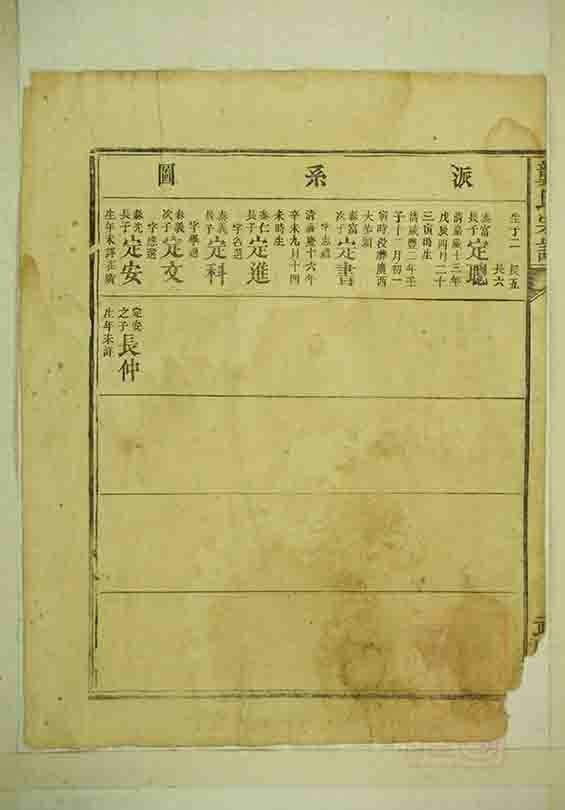 派系圖
生丁二 長五
長六
泰富
長子
定聰
清嘉慶十三年
戊辰四月二十
三寅時生
清咸豐二年壬
子十二月初一
寅時歿
廣西
泰富
次子
定書
字志禮
清嘉慶十六年
辛未九月十四
未時生
泰仁
長子
定進
字名選
泰義
長子
定科
字學選
泰義
次子
定文
字應選
泰光
長子
定安
生年未詳
定安
之子
長仲
生年未詳
氏宗譜